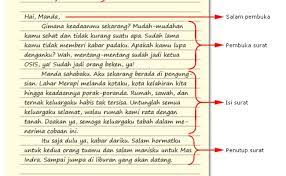 Hai, Manda, Salam pembuka
Gimana keadaanmu sekarang? Mudah-mudahan
kamu sehat dan tidak kurang suatu apa. Sudah lama
kamu tidak memberi kabar padaku. Apakah kamu lupa Pembuka surat
denganku? Wah, mentang-mentang sudah jadi ketua
OSIS, ya! Sudah jadi orang beken, ya!
Manda sahabaku. Aku sekarang berada di pengung-
sian. Lahar Merapi melanda kotaku, kota kelahiran kita
hingga keadaannya porak-poranda. Rumah, sawah, dan
ternak keluargaku habis tak tersisa. Untunglah semua Isi surat
keluargaku selamat, walau rumahku rata dengan
tanah. Doakan ya, semoga keluargaku tabah dalam me-
nerima cobaan ini.
Itu saja dulu ya, kabar dariku. Salam hormatku
untuk kedua orang tuamu dan salam manisku untuk Mas Penutup surat
Indra. Sampai jumpa di liburan yang akan datang.